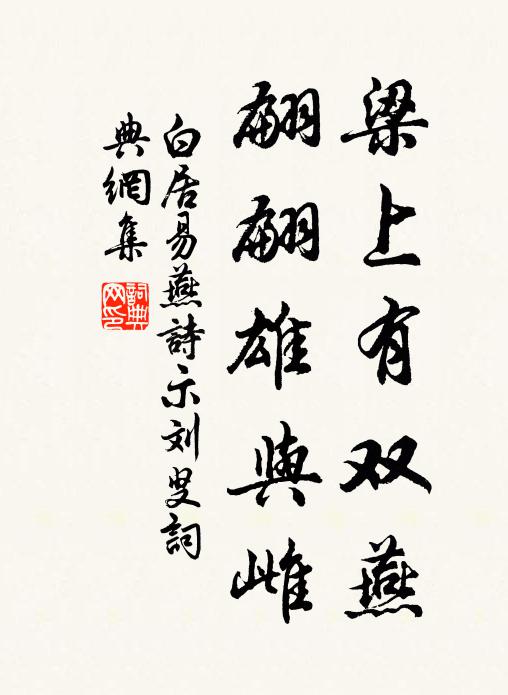 梁上有双燕
翩翩雄與雌
白居易燕詩示刘叟詞
典網集
詞典
网印